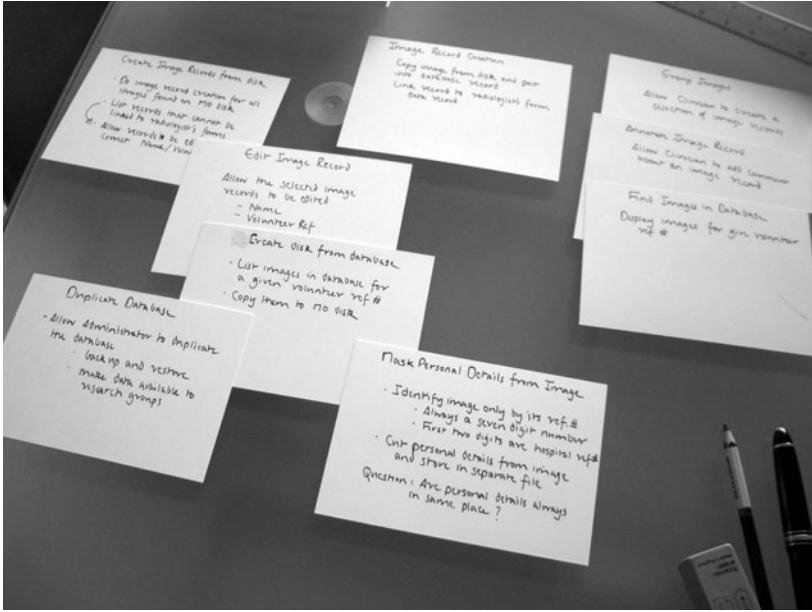 Create Image Records from disk
· Do image record creation for all
images found on MO disk
· List records that cannot be
linked to radiologist's forms
Allow records to be
correct Name/Volun
Image Record Creation
Copy image from disk and put
into database record
Link record to radiologist's form
data record
Group Images
Allow Clinician to create a
selection of image records
Annotate Image Record
Allow Clinician to add comment
about an image record
Find Images in Database
Display images for given volunteer
ref #
Edit Image Record
Allow the selected image
records to be edited
- Name
- Volunteer Ref
Create disk from database
· List images in database for
a given volunteer ref #
· Copy item to MO disk
Duplicate Database
- Allow Administrator to duplicate
the database
· back up and restore
· make data available to
research groups
Mask Personal Details from Image
· Identify image only by its ref. #
· Always a seven digit number
· First two digits are hospital ref#
· Cut personal details from image
and store in separate file
Question: Are personal details always
in same place?